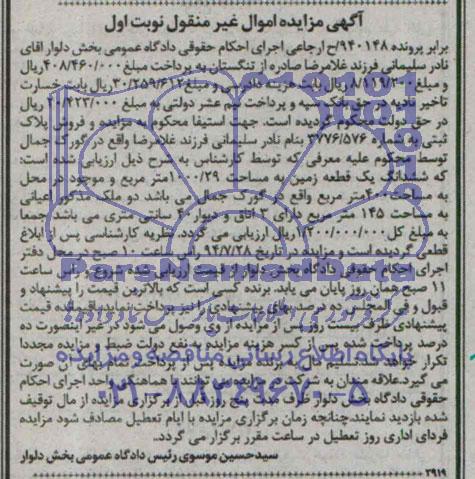 آگهی مزایده اموال غیر منقول نوبت اول
برابر پرونده ۹۴۰۱۴۸/ح ارجاعی اجرای احکام حقوقی دادگاه عمومی بخش دلوار آقای
نادر سلیمانی فرزند غلامرضا صادره از تنگستان به پرداخت مبلغ ۴۰۸/۴۶۰/۰۰۰ریال
و مبلغ ۸/۱۱۹/۲۰۰ ریال بابت هزینه دادرسی و مبلغ ۳۰/۲۵۹/۶۱۲ ریال بابت خسارت
تاخیر تادیه در حق بانک سپه و پرداخت نیم عشر دولتی به مبلغ ۲۰/۴۲۳/۰۰۰ ریال
در حق دولت محکوم گردیده است. جهت استیفا محکوم به مزایده و فروش پلاک
ثبتی به شماره ۳۷۷۶/۵۷۶ بنام نادر سلیمانی فرزند غلامرضا واقع در گورک جمال
توسط محکوم علیه معرفی که توسط کارشناس به شرح ذیل ارزیابی شده است:
که ششدانگ یک قطعه زمین به مساحت ۱۰۰۰/۲۹متر مربع و موجود در محل
به مساحت ۴۰۰متر مربع واقع در گورک جمال می باشد دو ملک مذکور اعیانی
به مساحت ۱۴۵ متر مربع دارای ۳ اتاق و دیوار ۴۰ سانتی متری می باشد جمعا
به مبلغ کل ۱/۲۰۰/۰۰۰/۰۰۰ریال ارزیابی می گردد. نظریه کارشناسی پس از ابلاغ
قطعی گردیده است و مزایده در تاریخ ۹۴/۷/۲۸ راس ساعت ۱۰ صبح در محل دفتر
اجرای احکام حقوقی دادگاه بخش دلوار از قیمت ارزیابی شده شروع و سر ساعت
۱۱ صبح همان روز پایان می یابد. برنده کسی است که بالاترین قیمت را پیشنهاد و
قبول و فی المجلس ده درصد بهای پیشنهادی را نیز پرداخت نماید باقیمانده قیمت
پیشنهادی ظرف بیست روز پس از مزایده از وی وصول می شود در غیر اینصورت ده
درصد پرداخت شده پس از کسر هزینه مزایده به نفع دولت ضبط و مزایده مجددا
تکرار خواهد شد. تسلیم مال به برنده مزایده پس از پرداخت تمام بهای آن صورت
می گیرد. علاقه مندان به شرکت در مزایده می توانند با هماهنگی واحد اجرای احکام
حقوقی دادگاه بخش دلوار ظرف مدت پنج روز قبل از برگزاری مزایده از مال توقیف
شده بازدید نمایند. چنانچه زمان برگزاری مزایده با ایام تعطیل مصادف شود مزایده
فردای اداری روز تعطیل در ساعت مقرر برگزار می گردد.
سیدحسین موسوی رئیس دادگاه عمومی بخش دلوار
۲۹۱۹
پایگاه اطلاع رسانی مناقصه و مزایده
۰۲۱-۸۸۳۴۹۶۷۰-۵